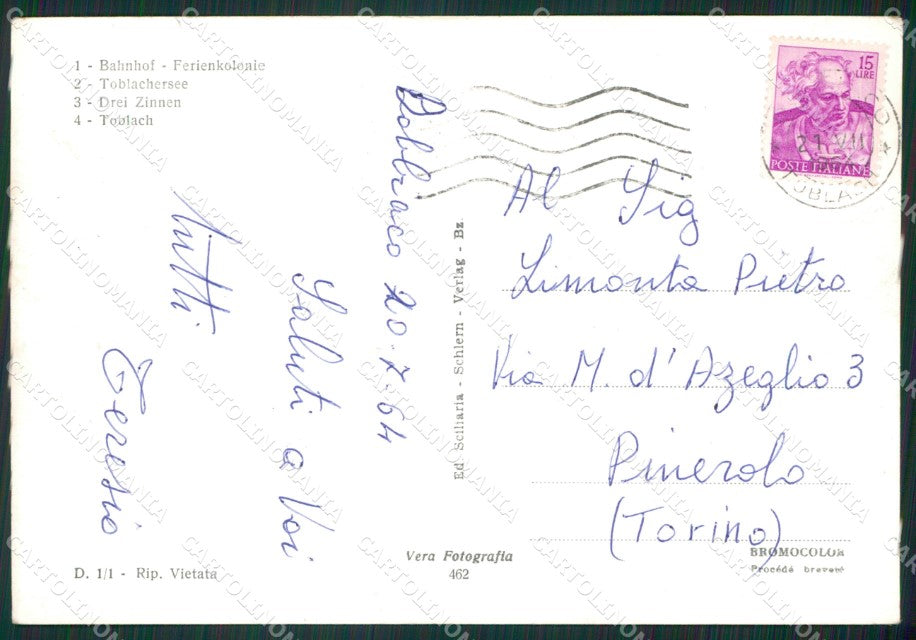 1 - Bahnhof - Ferienkolonie
2 - Toblachersee
3 - Drei Zinnen
4 - Toblach
Dobbiaco 20-7-64
Saluti a Voi
tutti
Teresio
D. 1/1 - Rip. Vietata
Ed. Sciliaria - Schlern - Verlag - Bz
Vera Fotografia
462
15
LIRE
POSTE ITALIANE
21 VII
Al Sig
Limonta Pietro
Via M. d'Azeglio 3
Pinerolo
(Torino)
BROMOCOLOR
Procédé breveté
CARTOLINOMANIA